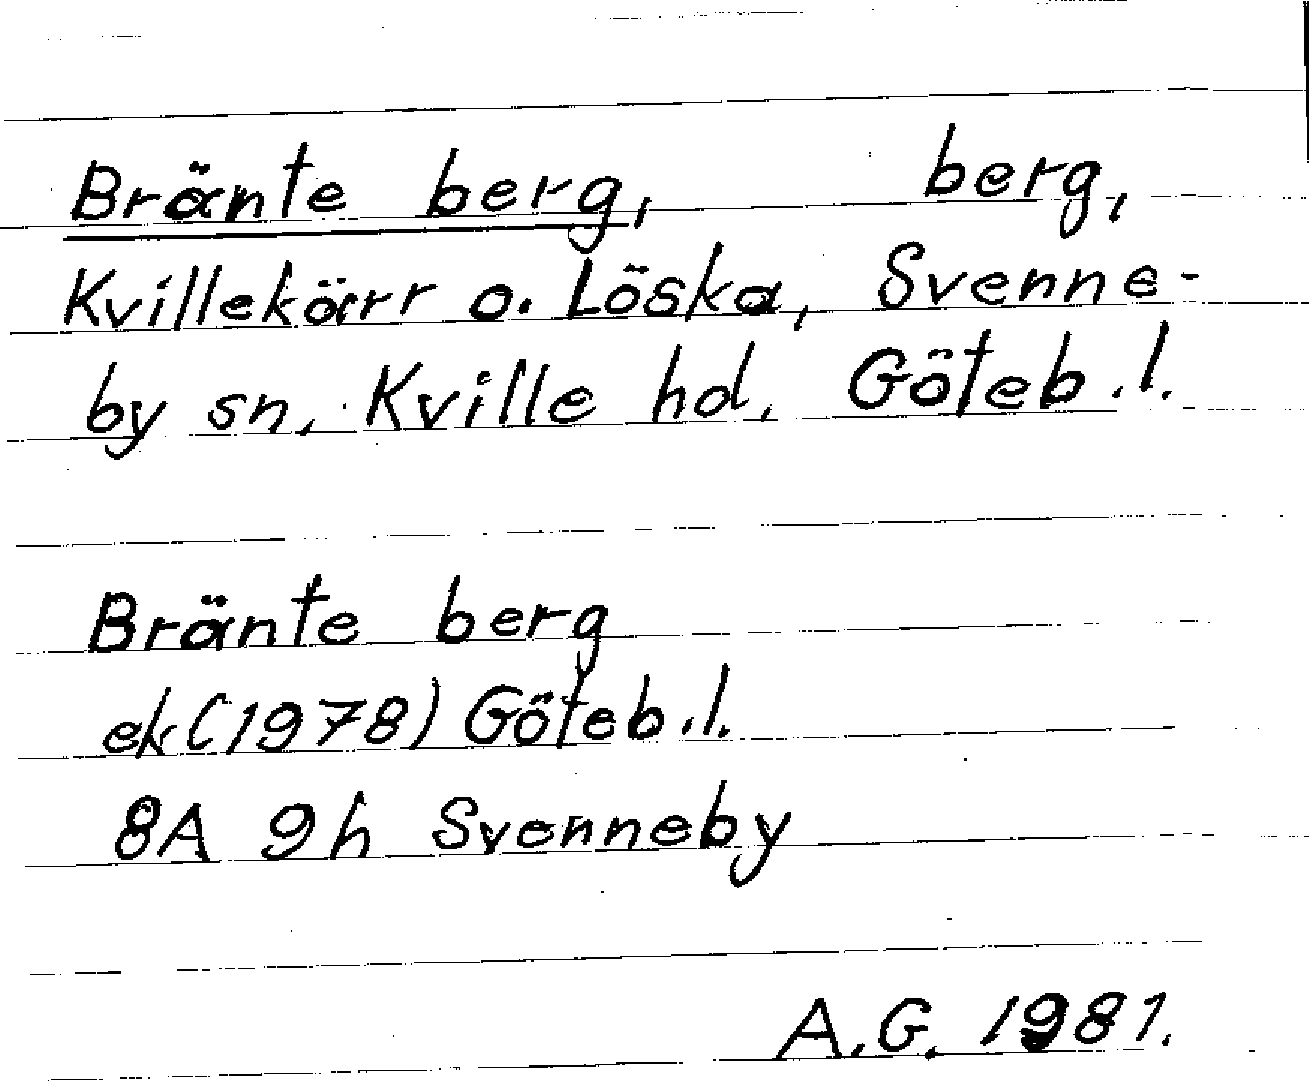 Bränte berg, berg,
Kvillekärr o. Löska, Svenne-
by sn, Kville hd, Göteb.l.
Bränte berg
ek (1978) Göteb.l.
8A 9h Svenneby
A.G. 1981.